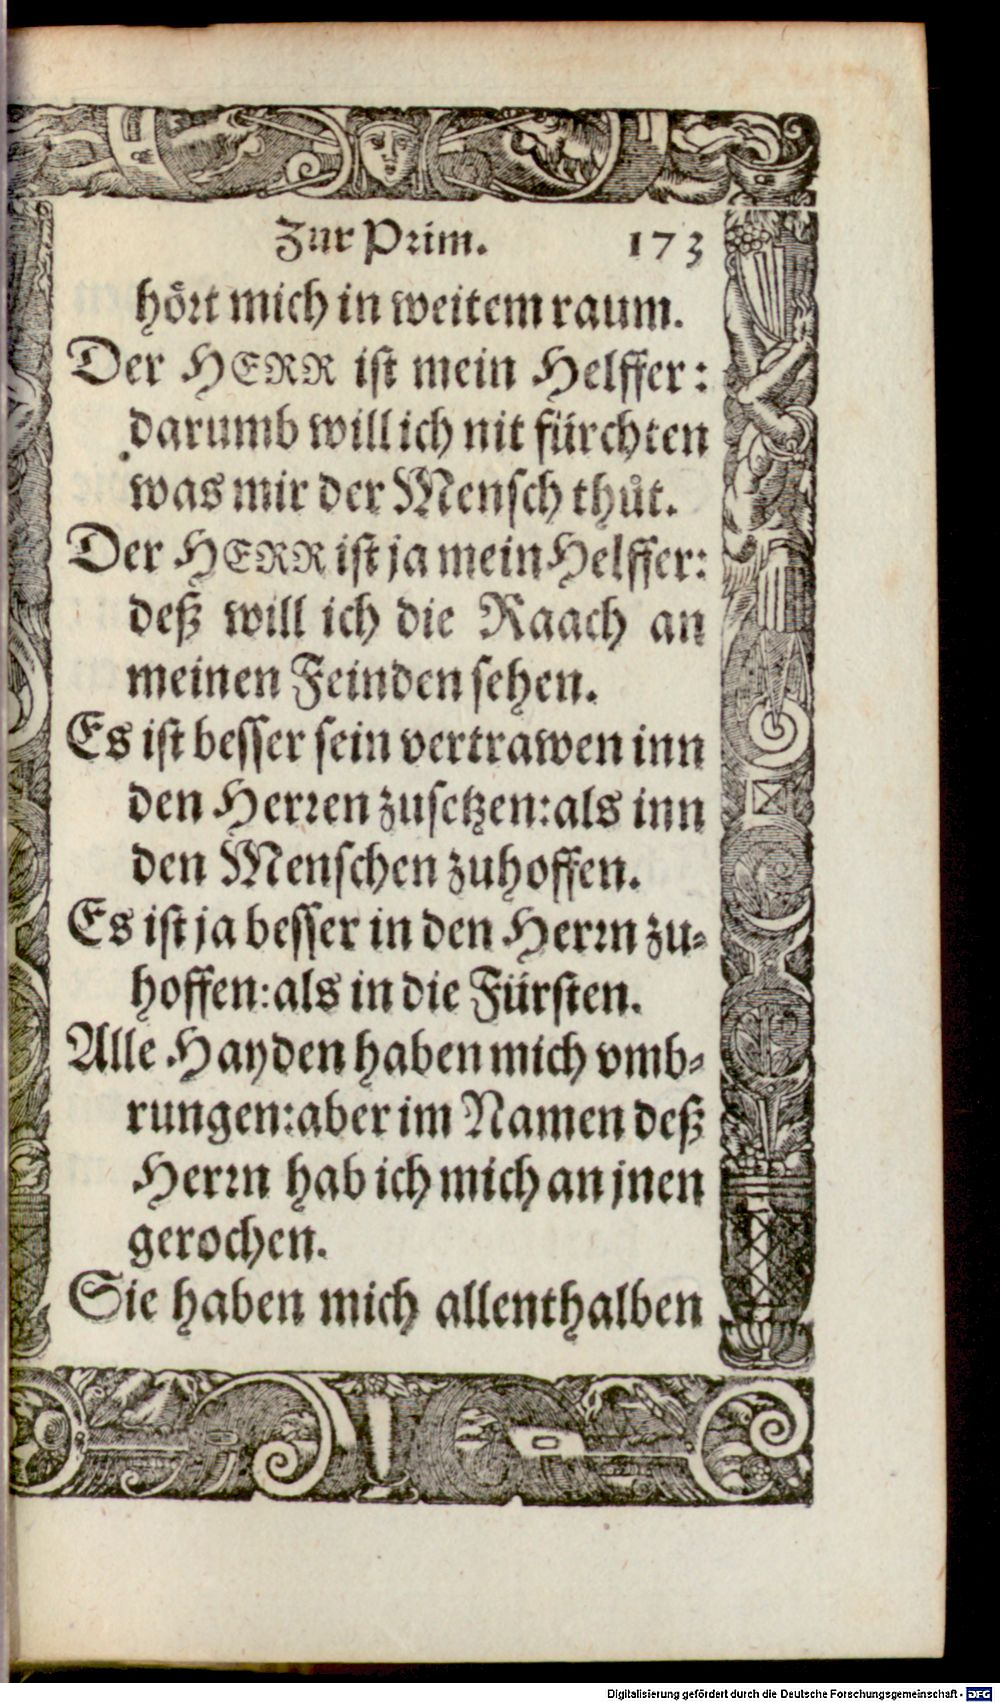 Zur Prim. 173
hoͤrt mich in weitem raum.
Der HERR ist mein Helffer:
darumb will ich nit fürchten
was mir der Mensch thuͦt.
Der HERR ist ja mein Helffer:
deß will ich die Raach an
meinen Feinden sehen.
Es ist besser sein vertrawen inn
den Herren zusetzen: als inn
den Menschen zuhoffen.
Es ist ja besser in den Herrn zu-
hoffen: als in die Fürsten.
Alle Hayden haben mich vmb-
rungen: aber im Namen deß
Herrn hab ich mich an jnen
gerochen.
Sie haben mich allenthalben
Digitalisierung gefördert durch die Deutsche Forschungsgemeinschaft - DFG